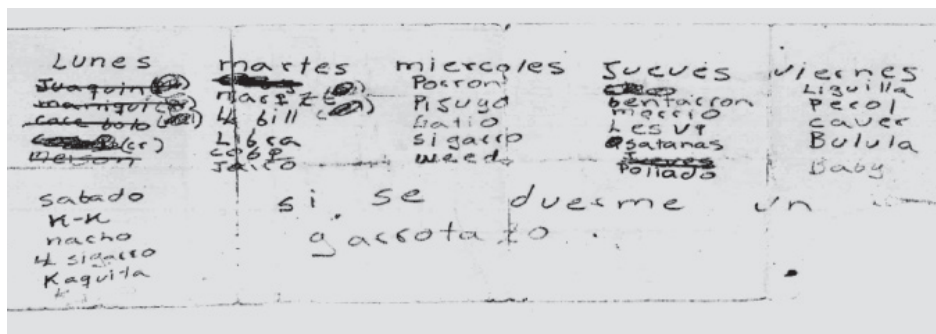 Lunes
Juaquin
mamiqui
care bolo
(cr)
Nelson
martes
4 bill
Libra
Jairo
miercoles
Porron
Pisuyo
Gatio
sigarro
weed
Jueves
bentarron
merrio
Lesvi
satanas
Jueves
Pollado
viernes
Liguilla
Pecol
caver
Bulula
Baby
sabado
K-K
nacho
4 sigarro
Kaquita
si se duerme un
garrotazo.